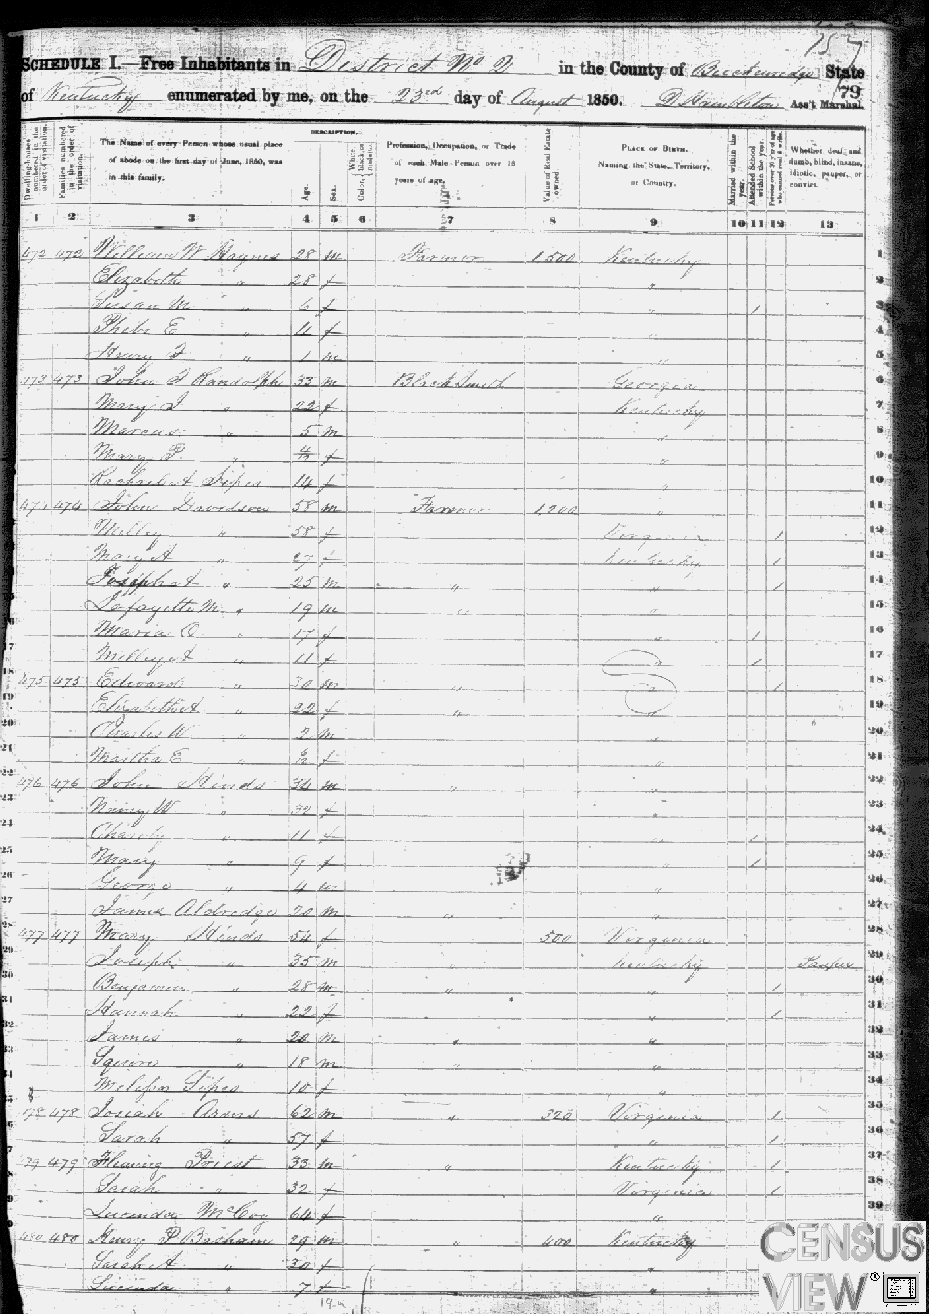 157
SCHEDULE I.—Free Inhabitants in District No 2 in the County of Breckenridge State
of Kentucky enumerated by me, on the 23rd day of August 1850. D Hambleton Ass't Marshal.
79
DESCRIPTION.
Dwelling-houses numbered in the order of visitation.
Families numbered in the order of visitation.
The Name of every Person whose usual place of abode on the first day of June, 1850, was in this family.
Age.
Sex.
Color, White, black, or mulatto.
Profession, Occupation, or Trade of each Male Person over 15 years of age.
Value of Real Estate owned
PLACE OF BIRTH. Naming the State, Territory, or Country.
Married within the year.
Attended School within the year.
Persons over 20 y'rs of age who cannot read & write.
Whether deaf and dumb, blind, insane, idiotic, pauper, or convict.
1 2 3 4 5 6 7 8 9 10 11 12 13
472 472 William W Haynes 28 m Farmer 1500 Kentucky 1
Elizabeth " 28 f "
Susan M " 6 f " 1 3
Phebe E " 4 f " 4
Henry " 1 m " 5
473 473 John Randolph 33 m Black Smith Georgia 6
Mary J " 22 f Kentucky 7
Marcus " 5 m " 8
Mary P " 4/12 f " 9
Sipes 14 f " 10
474 474 John Davidson 58 m Farmer 1200 " 11
Milley " 58 f Virginia 1 12
Mary A " 27 f Kentucky 1 13
Joseph A " 25 m " " 1 14
Lafayette M " 19 m " " 15
Maria " 17 f " 1 16
Milley A " 11 f " 1 17
475 475 Edward " 30 m " " 1 18
Elizabeth A " 22 f " " 19
Charles W " 2 m " 20
Martha E " f " 21
476 476 John Hinds 34 m " " 22
Nancy W " 32 f " 23
Charity " 11 f " 1 24
Mary " 9 f " 1 25
George " 4 m " 26
James Aldredge 20 m " " 27
477 477 Mary Hinds 54 f 500 Virginia 28
Joseph " 35 m " Kentucky Pauper 29
Benjamin " 28 m " " 1 30
Hannah " 22 f " 1 31
James " 20 m " " 32
Squire " 18 m " " 33
Melissa Sipes 10 f " 34
478 478 Josiah 62 m " 320 Virginia 1 35
Sarah " 57 f " 1 36
479 479 Fleming Priest 33 m " Kentucky 1 37
Sarah " 32 f Virginia 1 38
Lucinda McCoy 64 f " 39
480 480 Henry P Basham 29 m " 400 Kentucky
Sarah A " 30 f "
Lucinda " 7 f "
CENSUS
VIEW